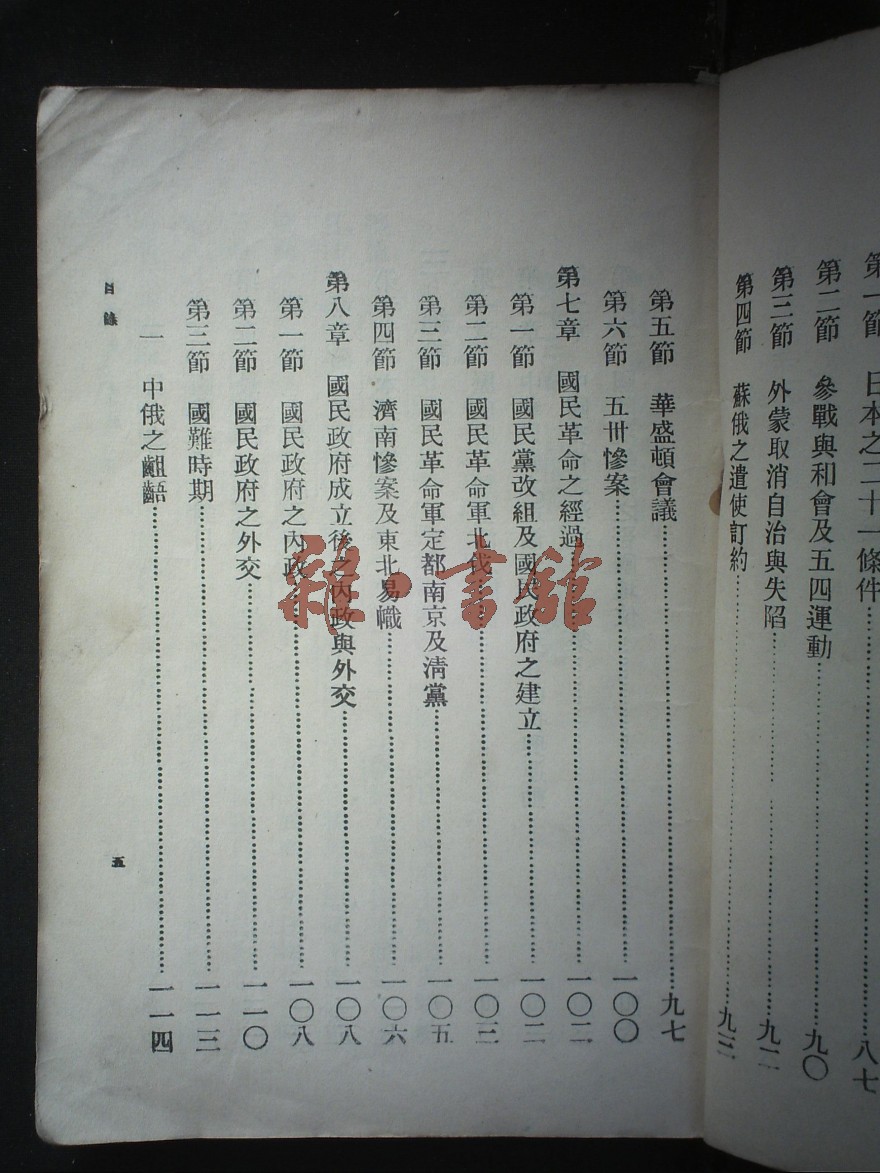 第一節 日本之二十一條件……八七
第二節 參戰與和會及五四運動……九〇
第三節 外蒙取消自治與失陷……九二
第四節 蘇俄之遣使訂約……九三
第五節 華盛頓會議……九七
第六節 五卅慘案……一〇〇
第七章 國民革命之經過……一〇二
第一節 國民黨改組及國民政府之建立……一〇二
第二節 國民革命軍北伐……一〇三
第三節 國民革命軍定都南京及淸黨……一〇五
第四節 濟南慘案及東北易幟……一〇六
第八章 國民政府成立後之內政與外交……一〇八
第一節 國民政府之內政……一〇八
第二節 國民政府之外交……一一〇
第三節 國難時期……一一三
一 中俄之齟齬……一一四
目錄
五
雜·書館